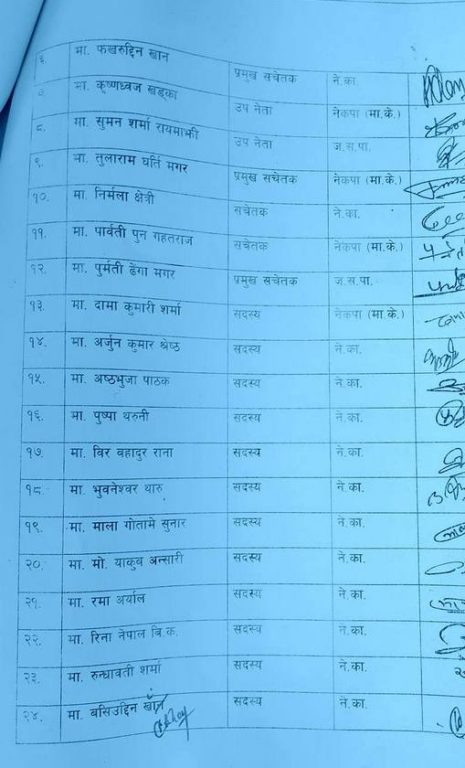 ६ मा. फखरुद्दिन खान प्रमुख सचेतक ने.का.
७ मा. कृष्णध्वज खड्का उप नेता नेकपा (मा.के.)
८. मा. सुमन शर्मा रायमाझी उप नेता ज.स.पा.
९. मा. तुलाराम घर्ति मगर प्रमुख सचेतक नेकपा (मा.के.)
१०. मा. निर्मला क्षेत्री सचेतक ने.का.
११. मा. पार्वती पुन गहतराज सचेतक नेकपा (मा.के.)
१२. मा. पुर्मती ढेगा मगर प्रमुख सचेतक ज.स.पा.
१३. मा. दामा कुमारी शर्मा सदस्य नेकपा (मा.के.)
१४. मा. अर्जुन कुमार श्रेष्ठ सदस्य ने.का.
१५. मा. अष्ठभुजा पाठक सदस्य ने.का.
१६. मा. पुष्पा थरुनी सदस्य ने.का.
१७. मा. विर बहादुर राना सदस्य ने.का.
१८. मा. भुवनेश्वर थारु सदस्य ने.का.
१९. मा. माला गोतामे सुनार सदस्य ने.का.
२०. मा. मो. याकुव अन्सारी सदस्य ने.का.
२१. मा. रमा अर्याल सदस्य ने.का.
२२. मा. रिना नेपाल बि.क. सदस्य ने.का.
२३. मा. रुन्धावती शर्मा सदस्य ने.का.
२४. मा. बसिउद्दिन खाँन सदस्य ने.का.